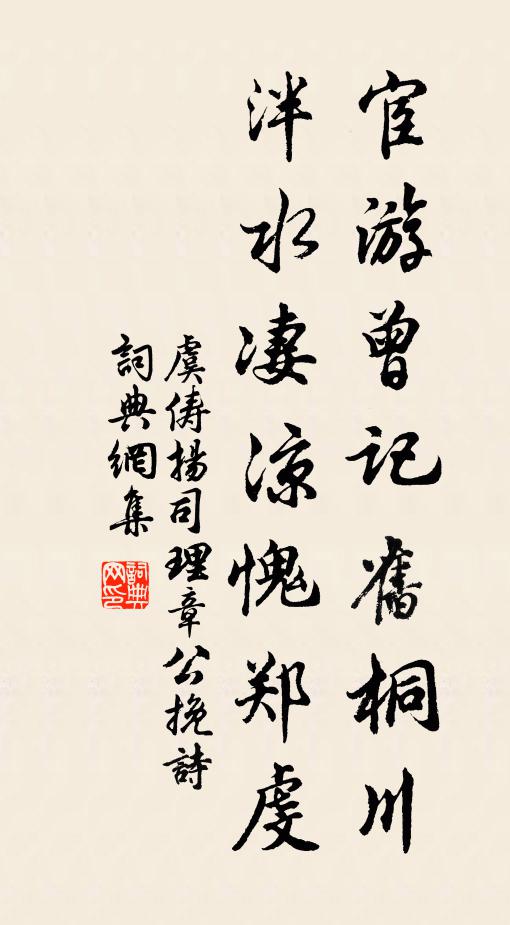 宦游曾记舊桐川
泮水凄凉愧郑虔
虞俦揚司理章公挽詩
詞典網集
詞典网印